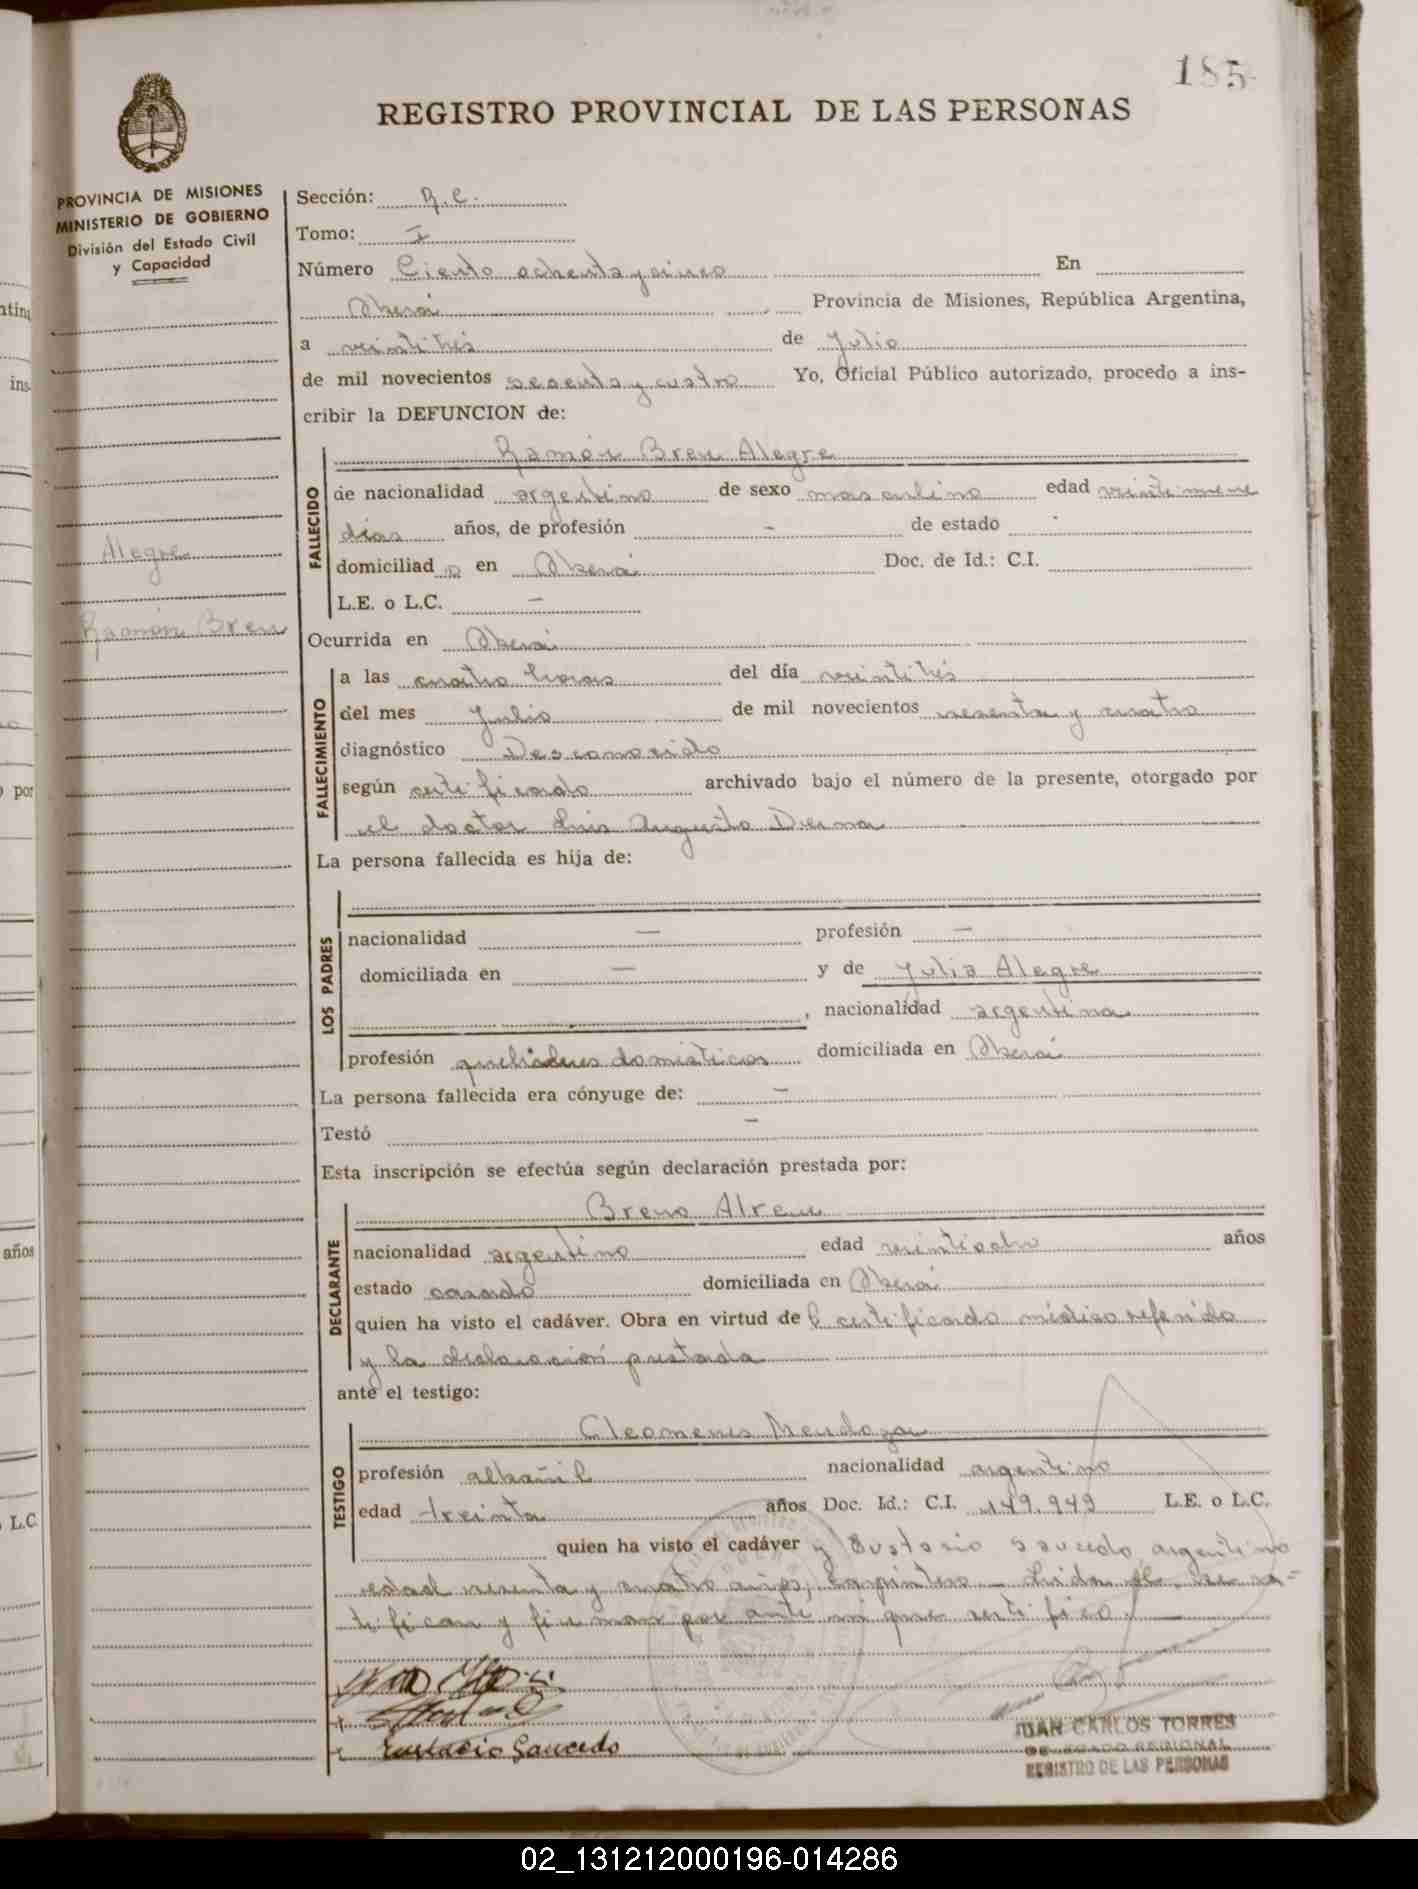 185
REGISTRO PROVINCIAL DE LAS PERSONAS
PROVINCIA DE MISIONES
MINISTERIO DE GOBIERNO
División del Estado Civil
y Capacidad
Alegre
Ramón Breu
Sección: R. C.
Tomo: I
Número Ciento ochenta y cinco En
Oberá Provincia de Misiones, República Argentina,
a veintitrés de Julio
de mil novecientos sesenta y cuatro Yo, Oficial Público autorizado, procedo a ins-
cribir la DEFUNCION de:
Ramón Breu Alegre
FALLECIDO
de nacionalidad argentino de sexo masculino edad veintinueve
días años, de profesión - de estado -
domiciliad o en Oberá Doc. de Id.: C.I.
L.E. o L.C. -
Ocurrida en Oberá
FALLECIMIENTO
a las cuatro horas del día veintitrés
del mes Julio de mil novecientos sesenta y cuatro
diagnóstico Desconocido
según certificado archivado bajo el número de la presente, otorgado por
el doctor Luis Augusto
La persona fallecida es hija de:
LOS PADRES
nacionalidad — profesión —
domiciliada en — y de Julia Alegre
, nacionalidad argentina
profesión quehaceres domésticos domiciliada en Oberá
La persona fallecida era cónyuge de: —
Testó —
Esta inscripción se efectúa según declaración prestada por:
DECLARANTE
nacionalidad argentino edad veintiocho años
estado casado domiciliada en Oberá
quien ha visto el cadáver. Obra en virtud de l certificado médico referido
y la declaración prestada
ante el testigo:
TESTIGO
Cleomenes Mendoza
profesión albañil nacionalidad argentino
edad treinta años Doc. Id.: C.I. 149.949 L.E. o L.C.
quien ha visto el cadáver y Eustacio Saucedo, argentino
edad sesenta y cuatro años, carpintero — Leída el se ra-
tifican y firman por ante mi que certifico. —
Eustacio Saucedo
JUAN CARLOS TORRES
DELEGADO REGIONAL
REGISTRO DE LAS PERSONAS
02_131212000196-014286